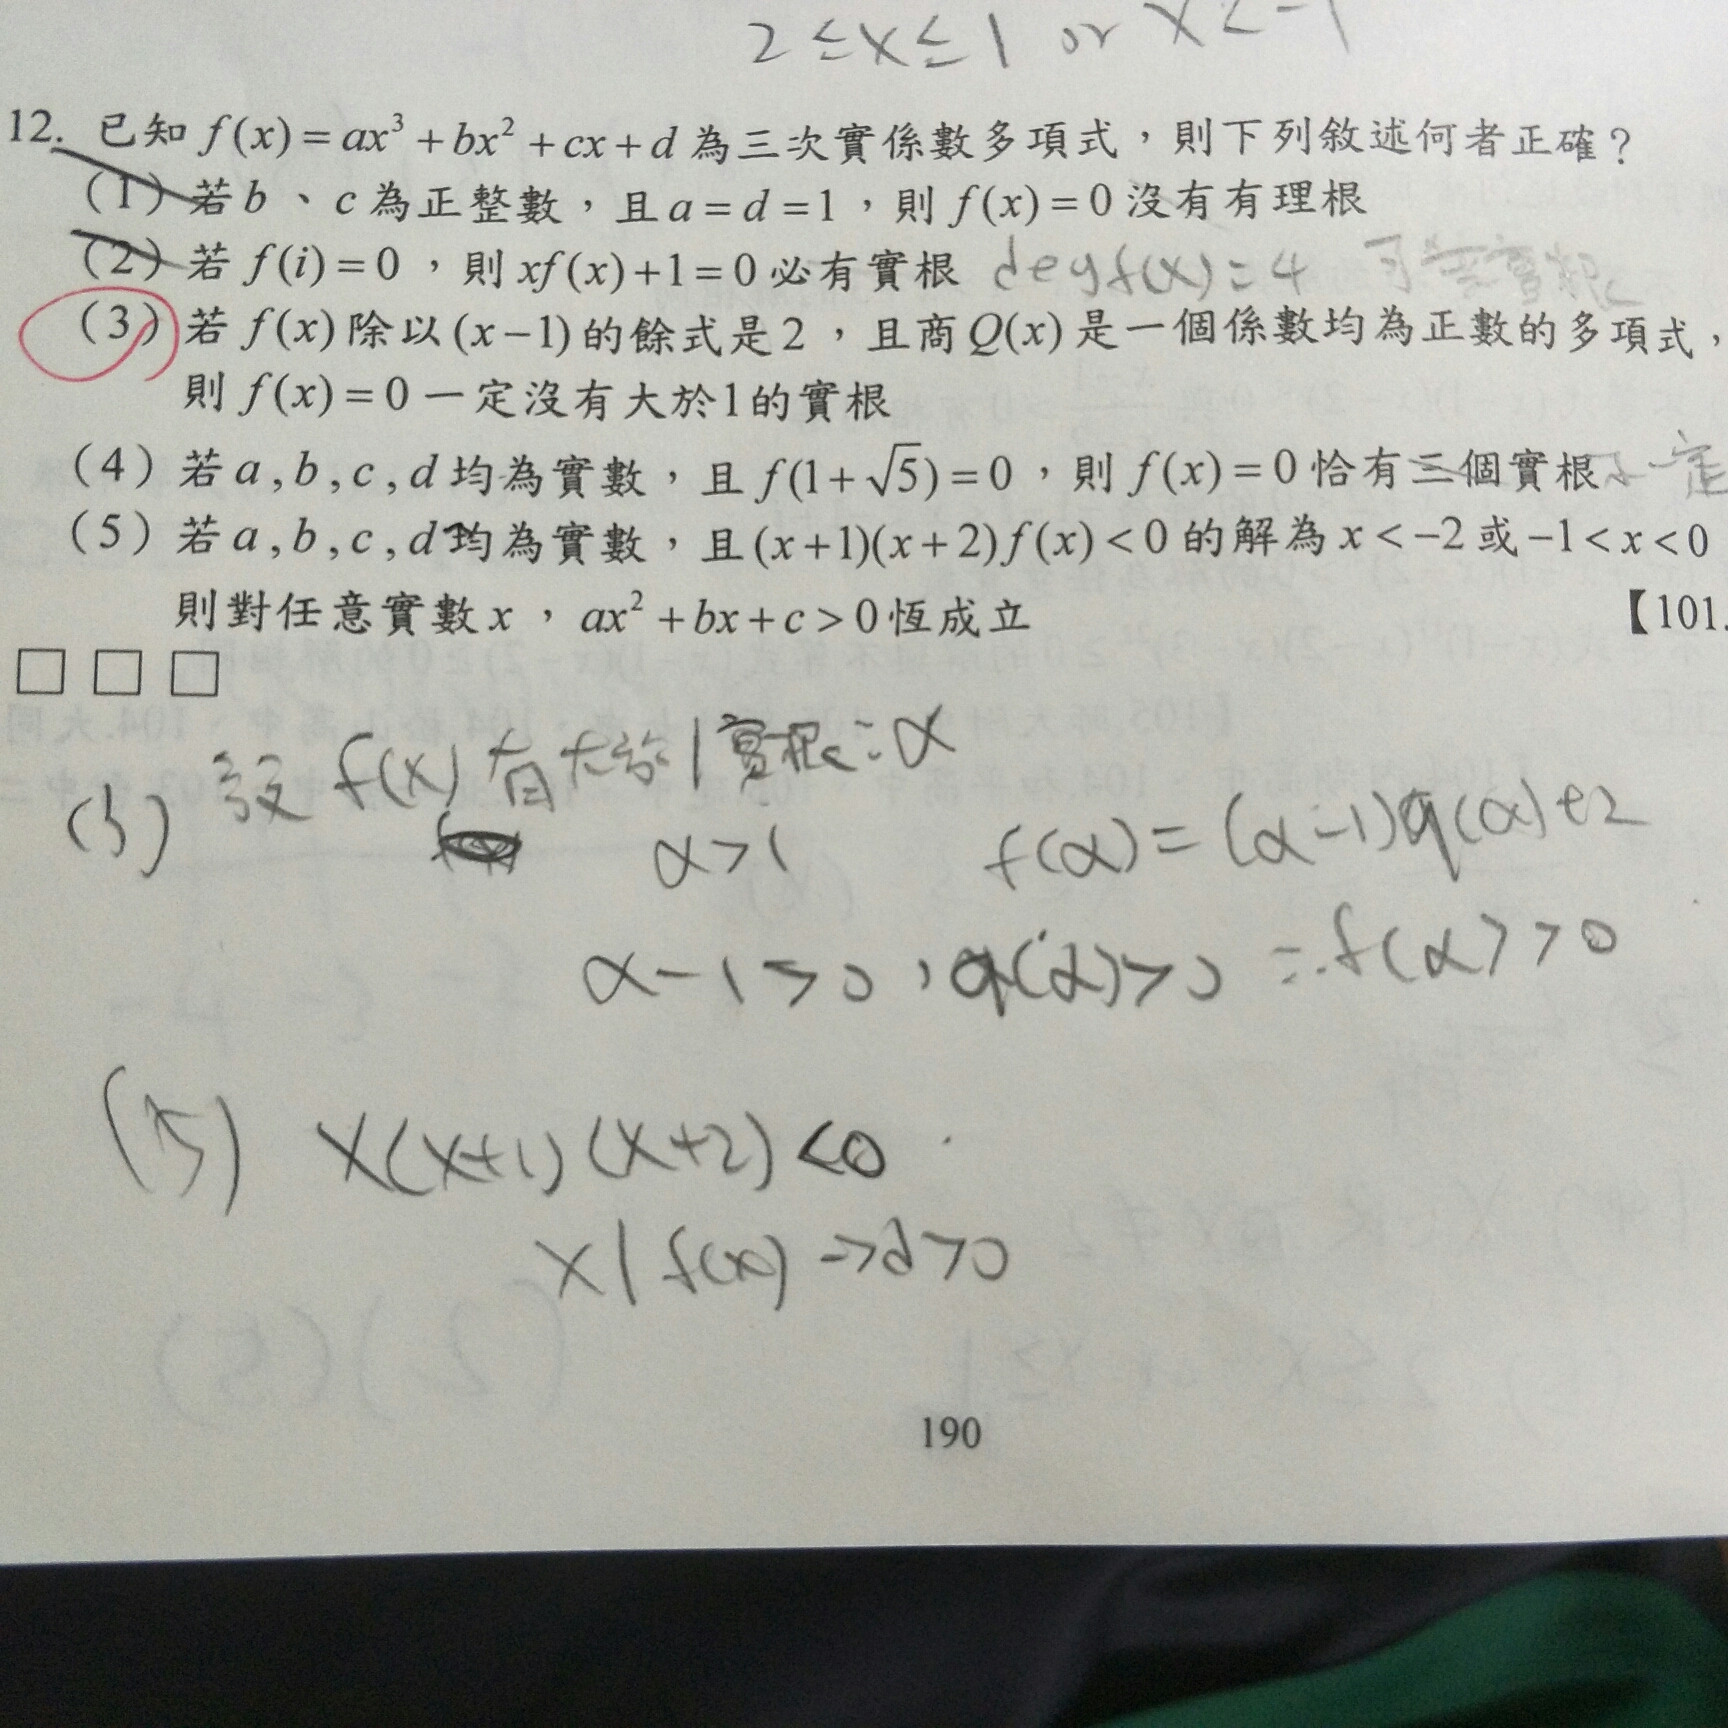 2 ≤ x ≤ 1 or x < -1
12. 已知 f(x) = ax³ + bx² + cx + d 為三次實係數多項式，則下列敘述何者正確？
(1) 若 b、c 為正整數，且 a = d = 1，則 f(x) = 0 沒有有理根
(2) 若 f(i) = 0，則 xf(x) + 1 = 0 必有實根 deg f(x) = 4 可無實根
(3) 若 f(x) 除以 (x − 1) 的餘式是 2，且商 Q(x) 是一個係數均為正數的多項式，
則 f(x) = 0 一定沒有大於 1 的實根
(4) 若 a, b, c, d 均為實數，且 f(1 + √5) = 0，則 f(x) = 0 恰有三個實根 不一定
(5) 若 a, b, c, d 均為實數，且 (x + 1)(x + 2)f(x) < 0 的解為 x < −2 或 −1 < x < 0
則對任意實數 x，ax² + bx + c > 0 恆成立 【101.
(3) 設 f(x) 有大於 1 實根 = α
α > 1 f(α) = (α − 1)q(α) + 2
α − 1 > 0，q(α) > 0 ∴ f(α) > 0
(5) x(x+1)(x+2) < 0
x | f(x) → d > 0
190